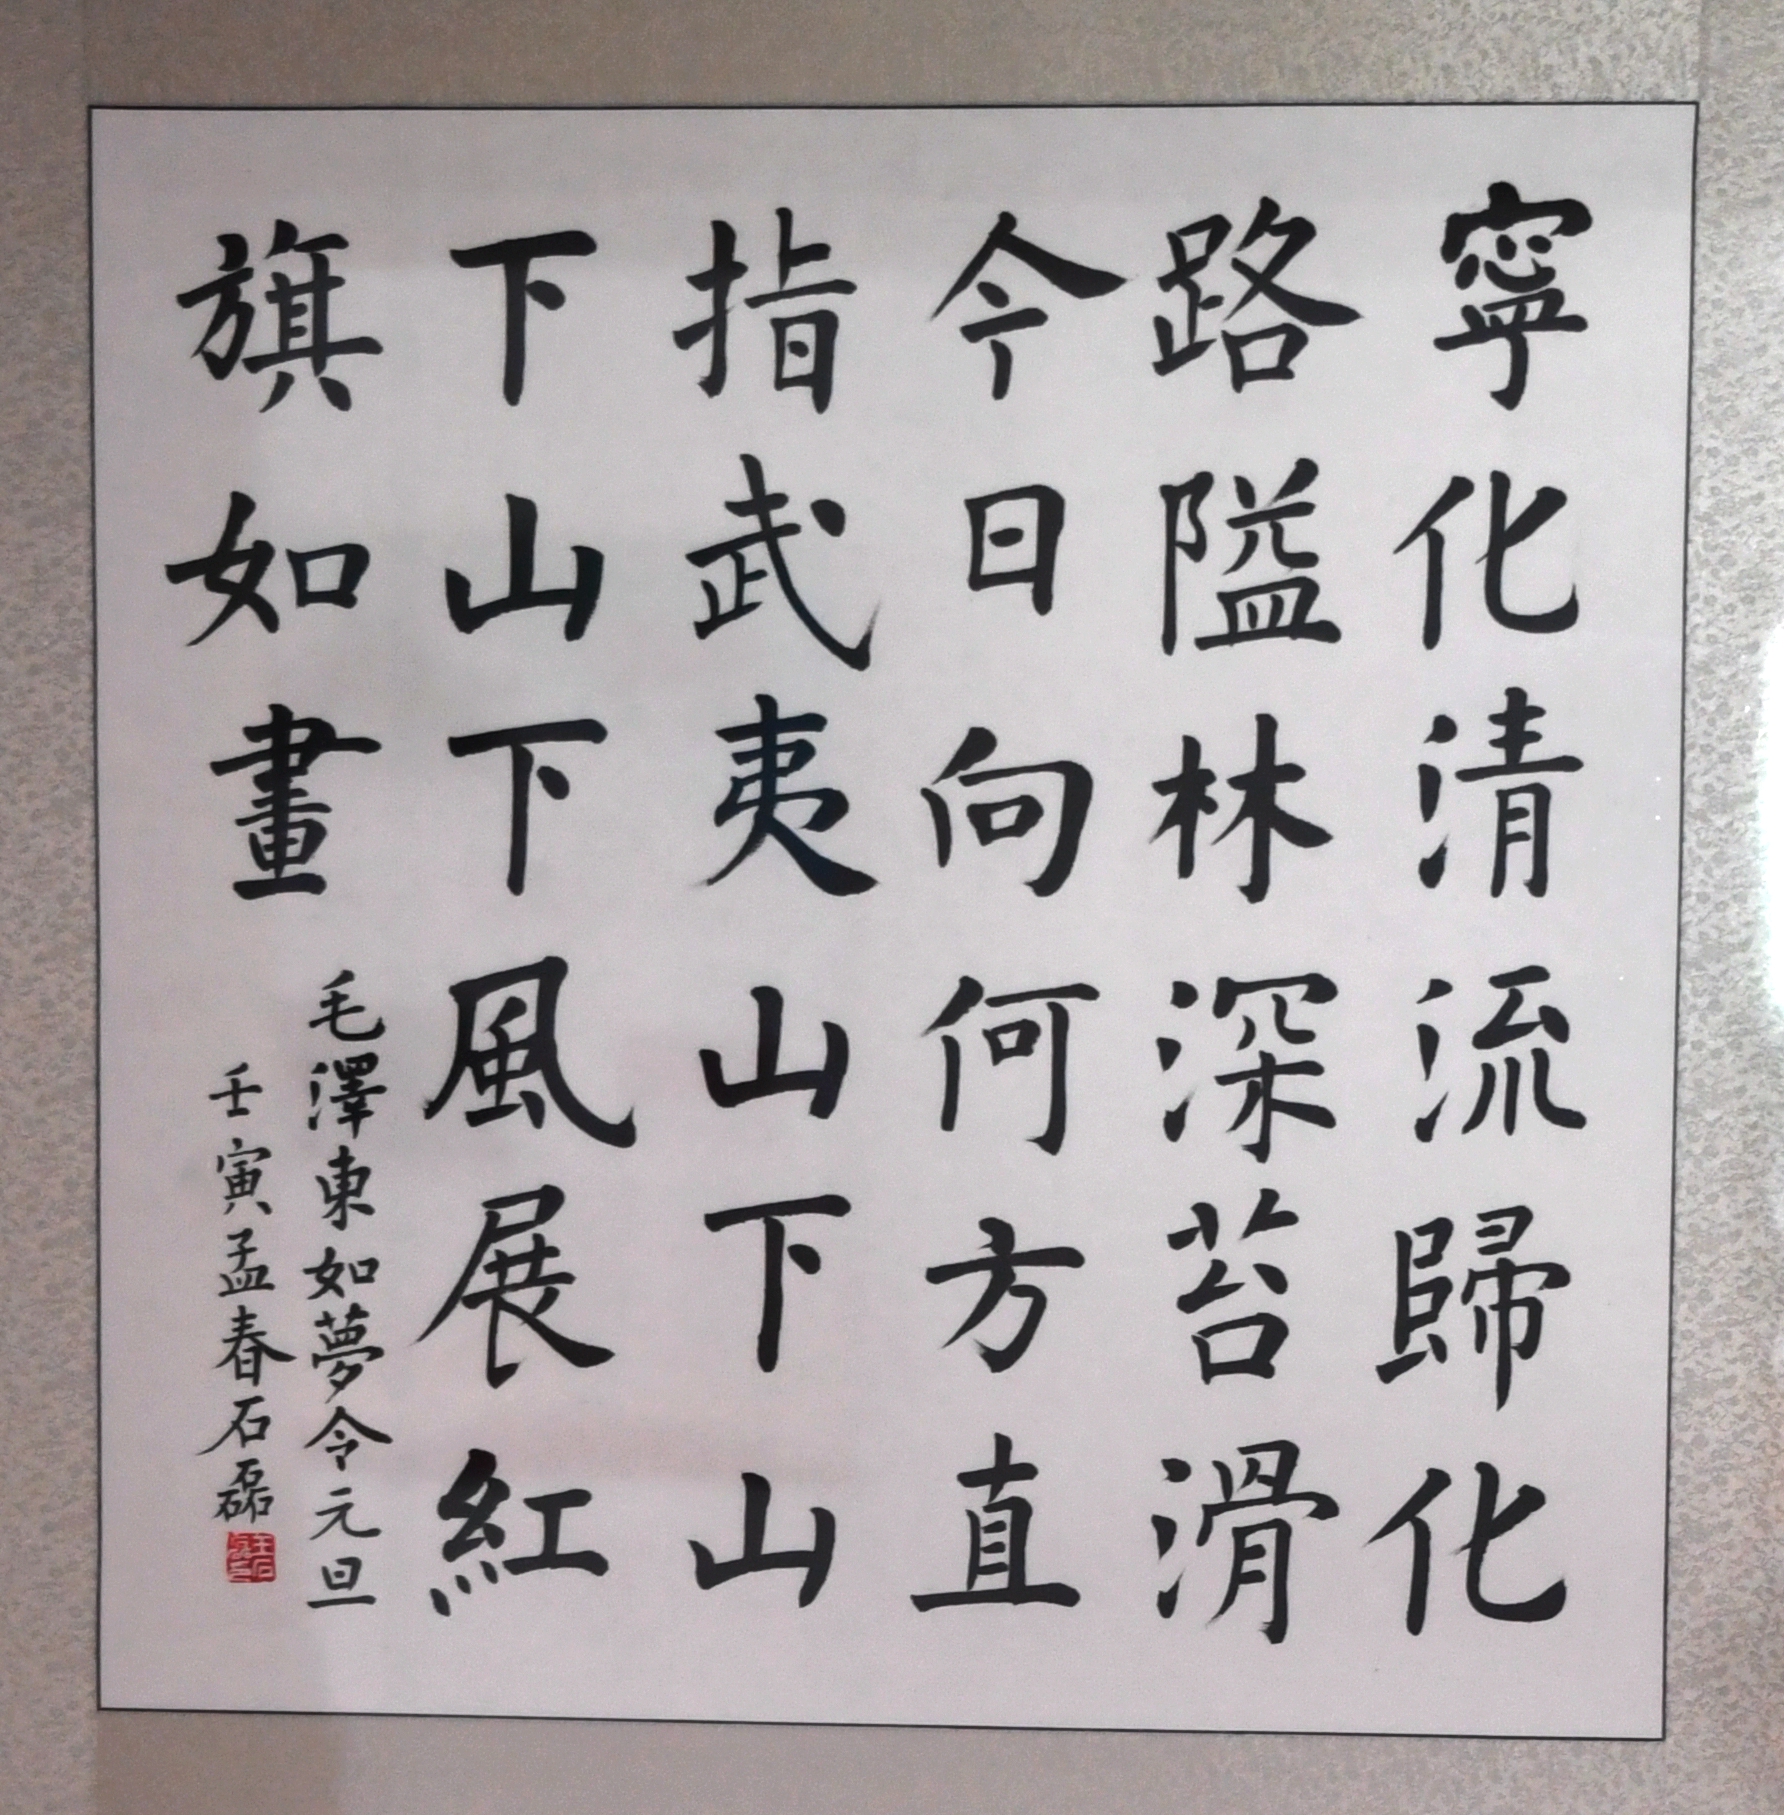 寧化清流歸化
路隘林深苔滑
今日向何方直
指武夷山下山
下山下風展紅
旗如畫
毛澤東如夢令元旦
壬寅孟春石磊